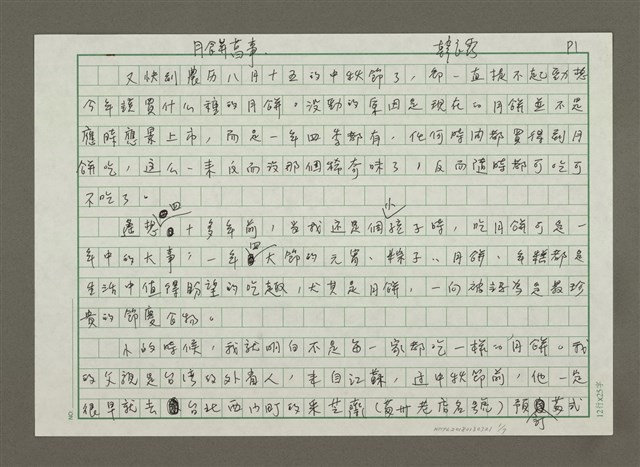 月餅高事 韓良露 P1
又快到農历八月十五的中秋節了，卻一直提不起勁想
今年該買什么樣的月餅。沒勁的原因是現在的月餅並不是
應時應景上市，而是一年四季都有，任何時間都買得到月
餅吃，这么一來反而沒那個稀奇味了，反而隨時都可吃可
不吃了。
想四十多年前，當我还是個小孩子時，吃月餅可是一
年中的大事；一年四大節的元宵、粽子、月餅、年糕都是
生活中值得盼望的吃趣，尤其是月餅，一向被認為是最珍
貴的節慶食物。
小的時候，我就明白不是每一家都吃一樣的月餅。我
的父親是台湾的外省人，來自江蘇，逢中秋節前，他一定
很早就去台北西門町的采芝齋（蘇州老店名號）預訂蘇式
12行×25字